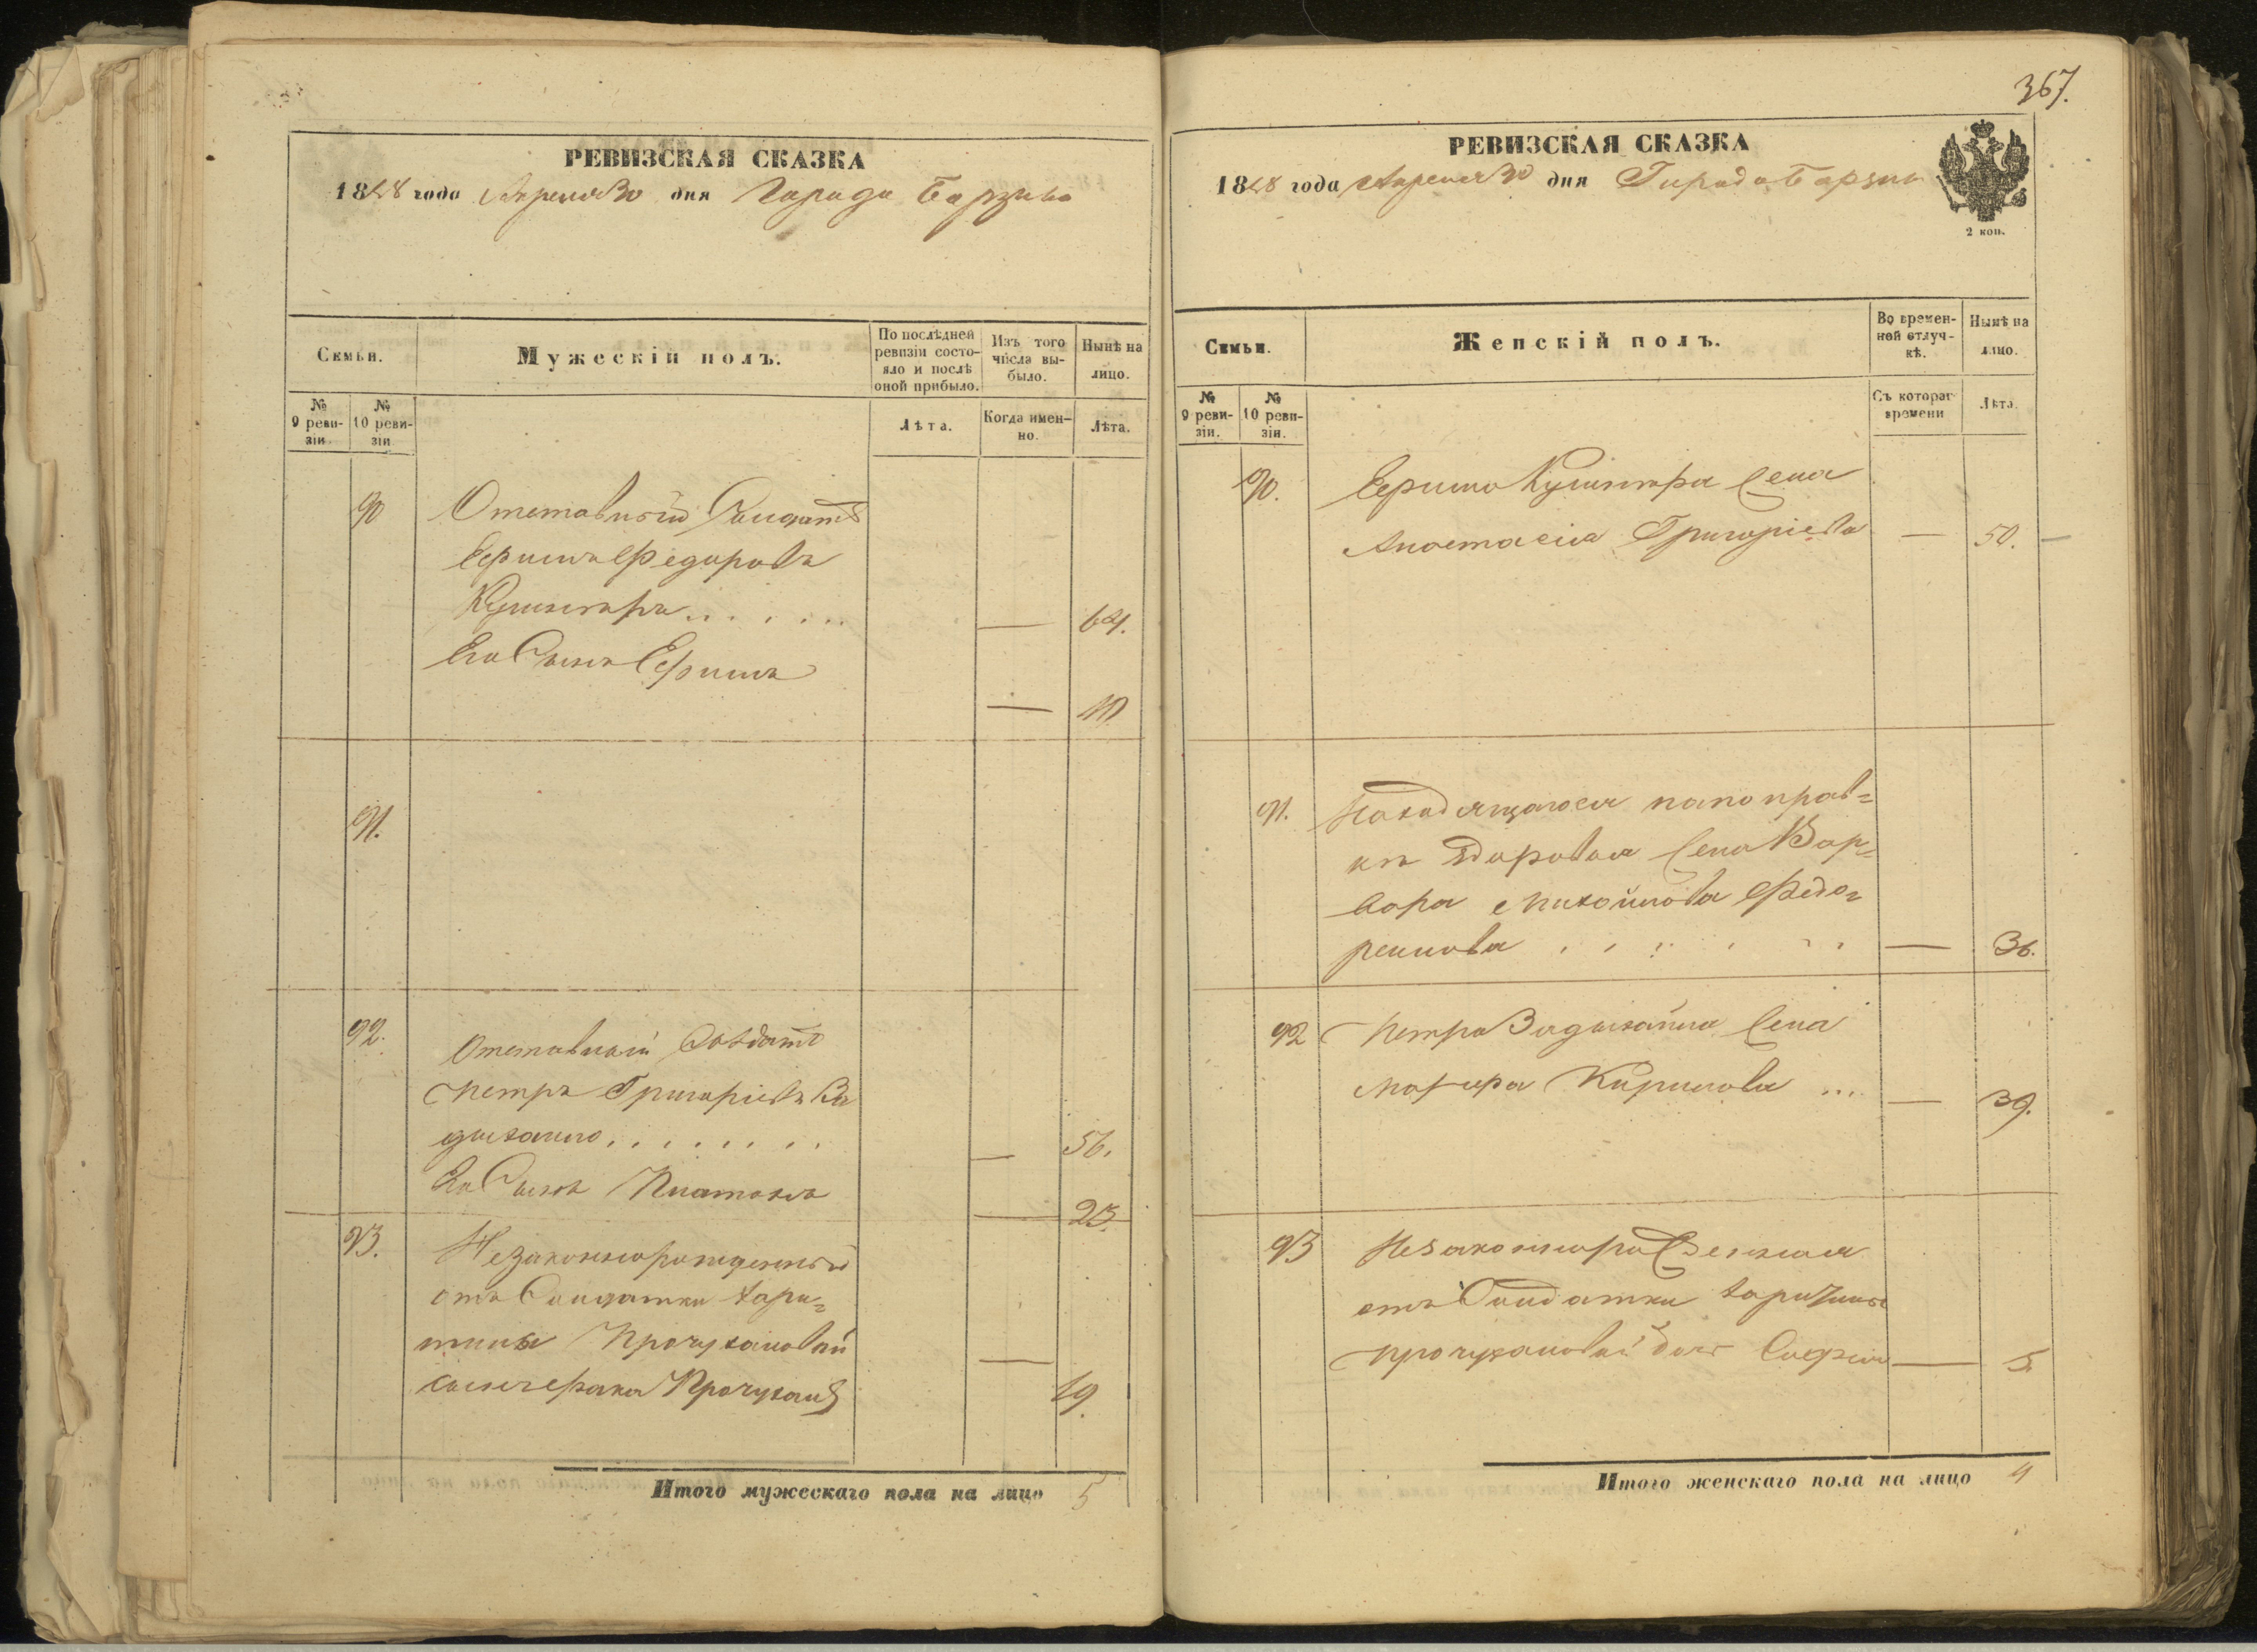 367.
РЕВИЗСКАЯ СКАЗКА
1858 года Апреля 30 дня Города Борзны
Семьи.
Мужескій полъ.
По послѣдней ревизіи состояло и послѣ оной прибыло.
Изъ того числа выбыло.
Нынѣ на лицо.
№ 9 ревизіи
№ 10 ревизіи
Лѣта.
Когда именно.
Лѣта.
90
Отставный Солдатъ
Ефимъ Федоровъ
. . . . . . — 64.
Его Сынъ Ефимъ
— 10
91.
92.
Отставный Солдатъ
Петръ Григоріевъ За
дыхайло . . . . . . . . — 56.
Его Сынъ Платонъ
— 23.
93.
Незаконнорожденный
отъ Солдатки Хари=
тины Прочухановой
сынъ Прочуханъ — 19.
Итого мужескаго пола на лицо 5
РЕВИЗСКАЯ СКАЗКА
1858 года Апреля 30 дня Города Борзны
2 коп.
Семьи.
Женскій полъ.
Во временной отлучкѣ.
Нынѣ на лицо.
№ 9 ревизіи.
№ 10 ревизіи.
Съ котораг времени
Лѣта.
90.
Ефима жена
Анастасія Григоріева — 50. —
91.
Находящагося на поправ=
къ здоровья жена Вар=
вара Михайлова Федо=
. . . . . . — 36.
92
Петра Задыхайла жена
Марфа Кирилова ... — 39.
93
Незаконнорожденная
отъ Солдатки Харитины
Прочухановой дочь Софія — 5
Итого женскаго пола на лицо 4